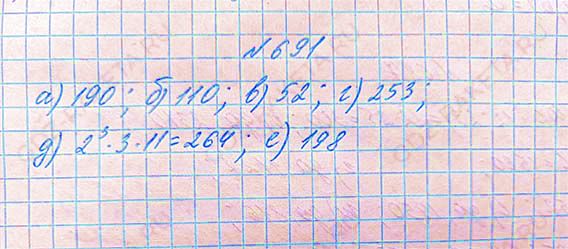 №691
а) 190; б) 110; в) 52; г) 253;
д) 2³·3·11=264; е) 198